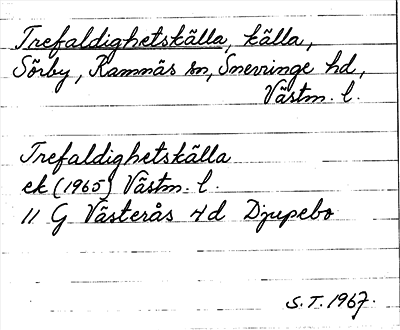 Trefaldighetskälla, källa,
Sörby, Ramnäs sn, Snevringe hd,
Västm. l.
Trefaldighetskälla
ek (1965) Västm. l.
11 G Västerås 4d Djupebo
S.T. 1967.